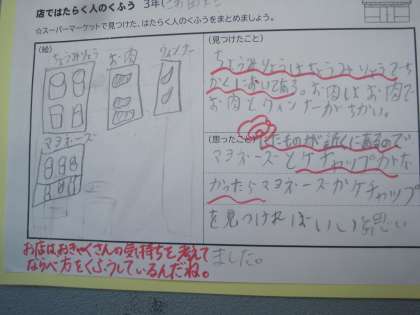 店ではたらく人のくふう 3年
☆スーパーマーケットで見つけた、はたらく人のくふうをまとめましょう。
(絵)
ちょうみりょう お肉 ウィンナー
マヨネーズ
(見つけたこと)
ちょうみりょうはちょうみりょうでち
かくにおいてある。お肉はお肉で
お肉とウィンナーがちかい。
(思ったこと)
たものが近くにあるので
マヨネーズとケチャップがな
かったらマヨネーズかケチャップ
を見つければいいと思い
ました。
お店はおきゃくさんの気持ちを考えて
ならべ方をくふうしているんだね。